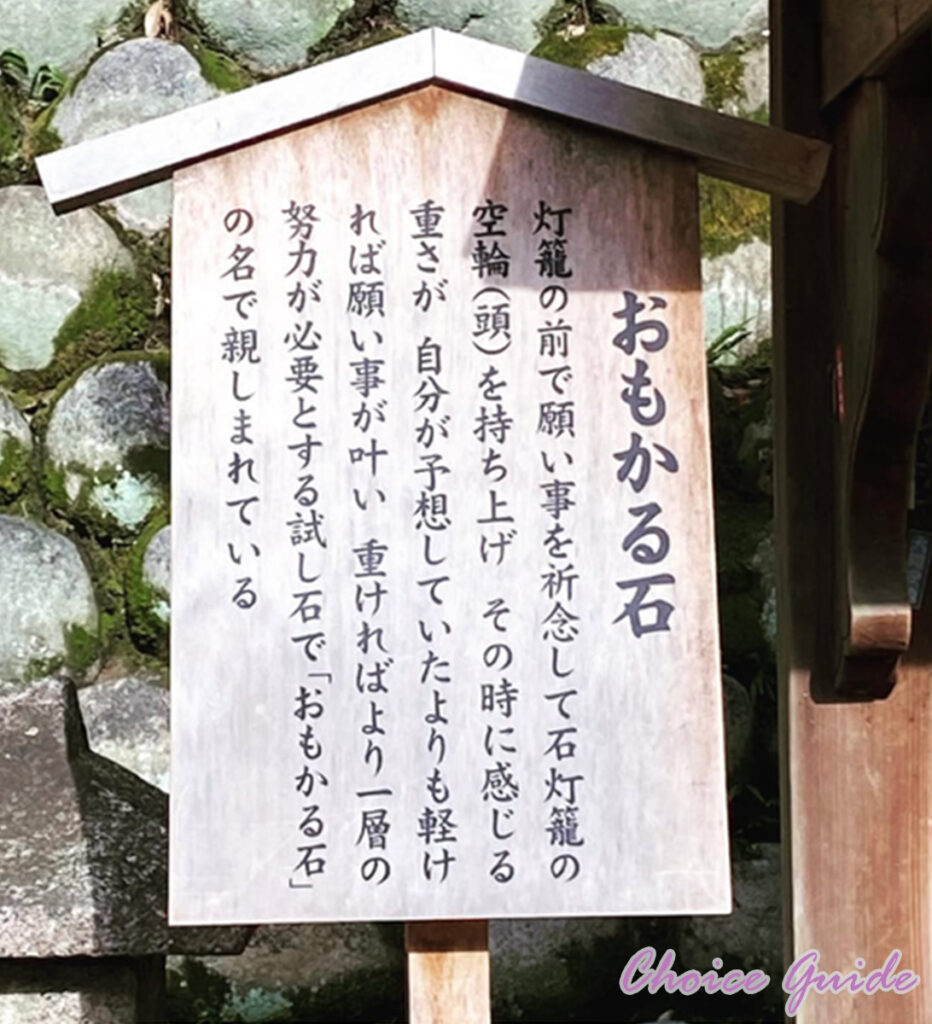 おもかる石
灯籠の前で願い事を祈念して石灯籠の
空輪(頭)を持ち上げ その時に感じる
重さが 自分が予想していたよりも軽け
れば願い事が叶い 重ければより一層の
努力が必要とする試し石で「おもかる石」
の名で親しまれている
Choice Guide